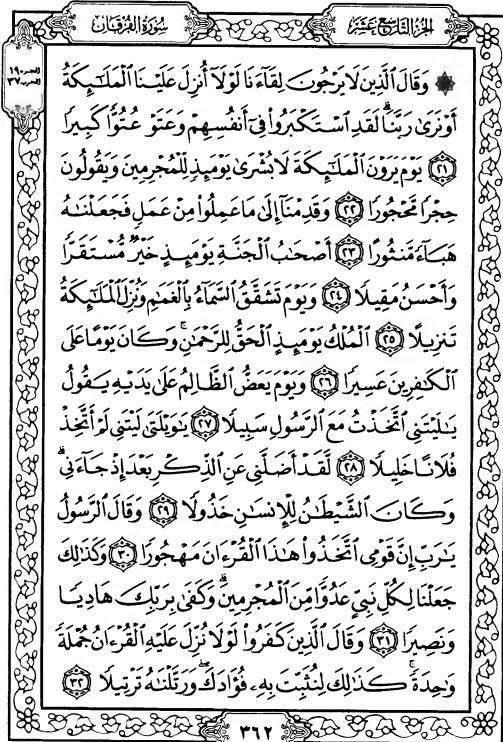 الجزء التاسع عشر
سورة الفرقان
الجزء ١٩
الحزب ٣٧
۞ وَقَالَ الَّذِينَ لَا يَرْجُونَ لِقَاءَنَا لَوْلَا أُنزِلَ عَلَيْنَا الْمَلَٰئِكَةُ
أَوْ نَرَىٰ رَبَّنَا ۗ لَقَدِ اسْتَكْبَرُوا فِي أَنفُسِهِمْ وَعَتَوْ عُتُوًّا كَبِيرًا
﴿٢١﴾ يَوْمَ يَرَوْنَ الْمَلَٰئِكَةَ لَا بُشْرَىٰ يَوْمَئِذٍ لِّلْمُجْرِمِينَ وَيَقُولُونَ
حِجْرًا مَّحْجُورًا ﴿٢٢﴾ وَقَدِمْنَا إِلَىٰ مَا عَمِلُوا مِنْ عَمَلٍ فَجَعَلْنَٰهُ
هَبَاءً مَّنثُورًا ﴿٢٣﴾ أَصْحَٰبُ الْجَنَّةِ يَوْمَئِذٍ خَيْرٌ مُّسْتَقَرًّا
وَأَحْسَنُ مَقِيلًا ﴿٢٤﴾ وَيَوْمَ تَشَقَّقُ السَّمَاءُ بِالْغَمَٰمِ وَنُزِّلَ الْمَلَٰئِكَةُ
تَنزِيلًا ﴿٢٥﴾ الْمُلْكُ يَوْمَئِذٍ الْحَقُّ لِلرَّحْمَٰنِ ۚ وَكَانَ يَوْمًا عَلَى
الْكَٰفِرِينَ عَسِيرًا ﴿٢٦﴾ وَيَوْمَ يَعَضُّ الظَّالِمُ عَلَىٰ يَدَيْهِ يَقُولُ
يَٰلَيْتَنِي اتَّخَذْتُ مَعَ الرَّسُولِ سَبِيلًا ﴿٢٧﴾ يَٰوَيْلَتَىٰ لَيْتَنِي لَمْ أَتَّخِذْ
فُلَانًا خَلِيلًا ﴿٢٨﴾ لَّقَدْ أَضَلَّنِي عَنِ الذِّكْرِ بَعْدَ إِذْ جَاءَنِي ۗ
وَكَانَ الشَّيْطَٰنُ لِلْإِنسَٰنِ خَذُولًا ﴿٢٩﴾ وَقَالَ الرَّسُولُ
يَٰرَبِّ إِنَّ قَوْمِي اتَّخَذُوا هَٰذَا الْقُرْءَانَ مَهْجُورًا ﴿٣٠﴾ وَكَذَٰلِكَ
جَعَلْنَا لِكُلِّ نَبِيٍّ عَدُوًّا مِّنَ الْمُجْرِمِينَ ۗ وَكَفَىٰ بِرَبِّكَ هَادِيًا
وَنَصِيرًا ﴿٣١﴾ وَقَالَ الَّذِينَ كَفَرُوا لَوْلَا نُزِّلَ عَلَيْهِ الْقُرْءَانُ جُمْلَةً
وَٰحِدَةً ۚ كَذَٰلِكَ لِنُثَبِّتَ بِهِ فُؤَادَكَ ۖ وَرَتَّلْنَٰهُ تَرْتِيلًا ﴿٣٢﴾
٣٦٢